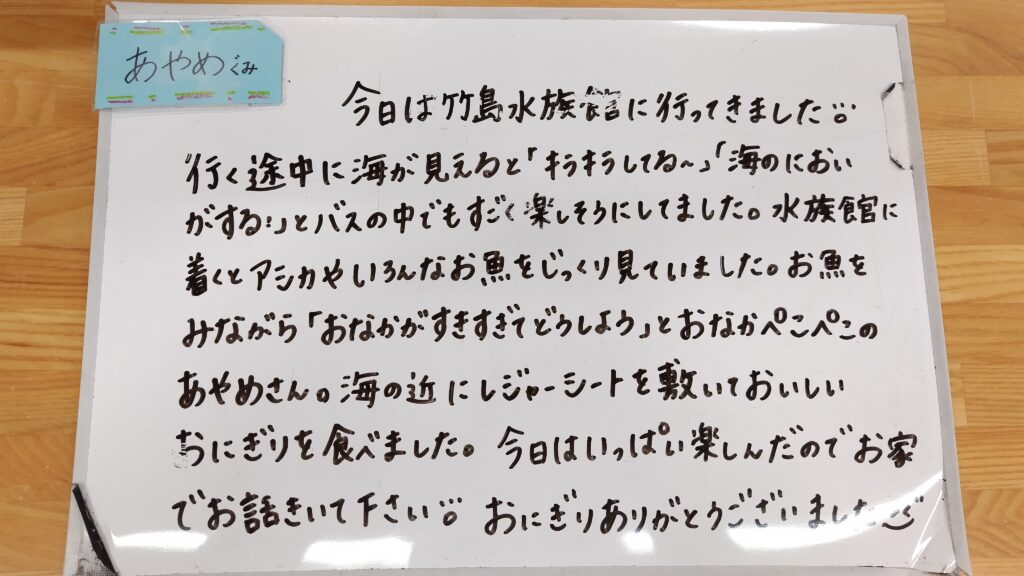 あやめぐみ
今日は竹島水族館に行ってきました
行く途中に海が見えると「キラキラしてる〜」「海のにおい
がする!」とバスの中でもすごく楽しそうにしてました。水族館に
着くとアシカやいろんなお魚をじっくり見ていました。お魚を
みながら「おなかがすきすぎてどうしよう」とおなかぺこぺこの
あやめさん。海の近にレジャーシートを敷いておいしい
おにぎりを食べました。今日はいっぱい楽しんだのでお家
でお話きいて下さい おにぎりありがとうございました